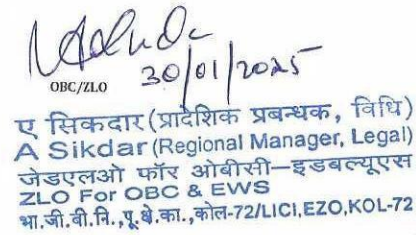 30/01/2025
OBC/ZLO
ए सिकदार (प्रादेशिक प्रबन्धक, विधि)
A Sikdar (Regional Manager, Legal)
जेडएलओ फॉर ओबीसी–इडबल्यूएस
ZLO For OBC & EWS
भा.जी.बी.नि.,पू.क्षे.का.,कोल-72/LICI,EZO,KOL-72